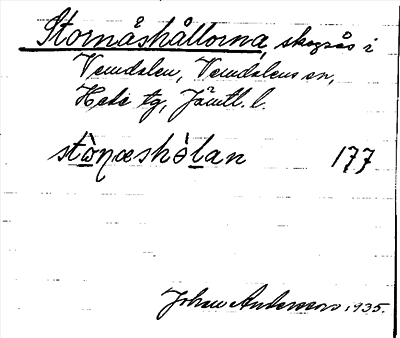 Stornåshållorna, skogsås i
Vemdalen, Vemdalens sn,
Hede tg, Jämtl. l.
stò̱ŋæshò̱lan 177
Johan Anderson 1935.